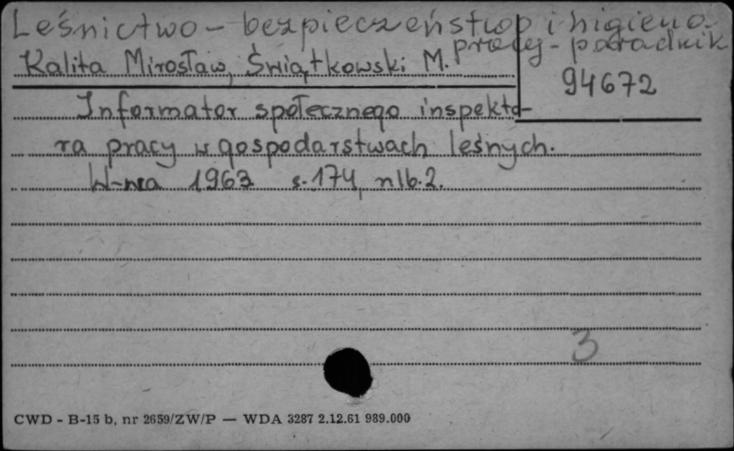 Leśnictwo - bezpieczeństwo i higiena
pracy - poradnik
Kalita Mirosław, Świątkowski M.
94672
Informator społecznego inspekto-
ra pracy w gospodarstwach leśnych.
W-wa 1963 s. 174, nlb. 2.
3
CWD - B-15 b, nr 2659/ZW/P — WDA 3287 2.12.61 989.000